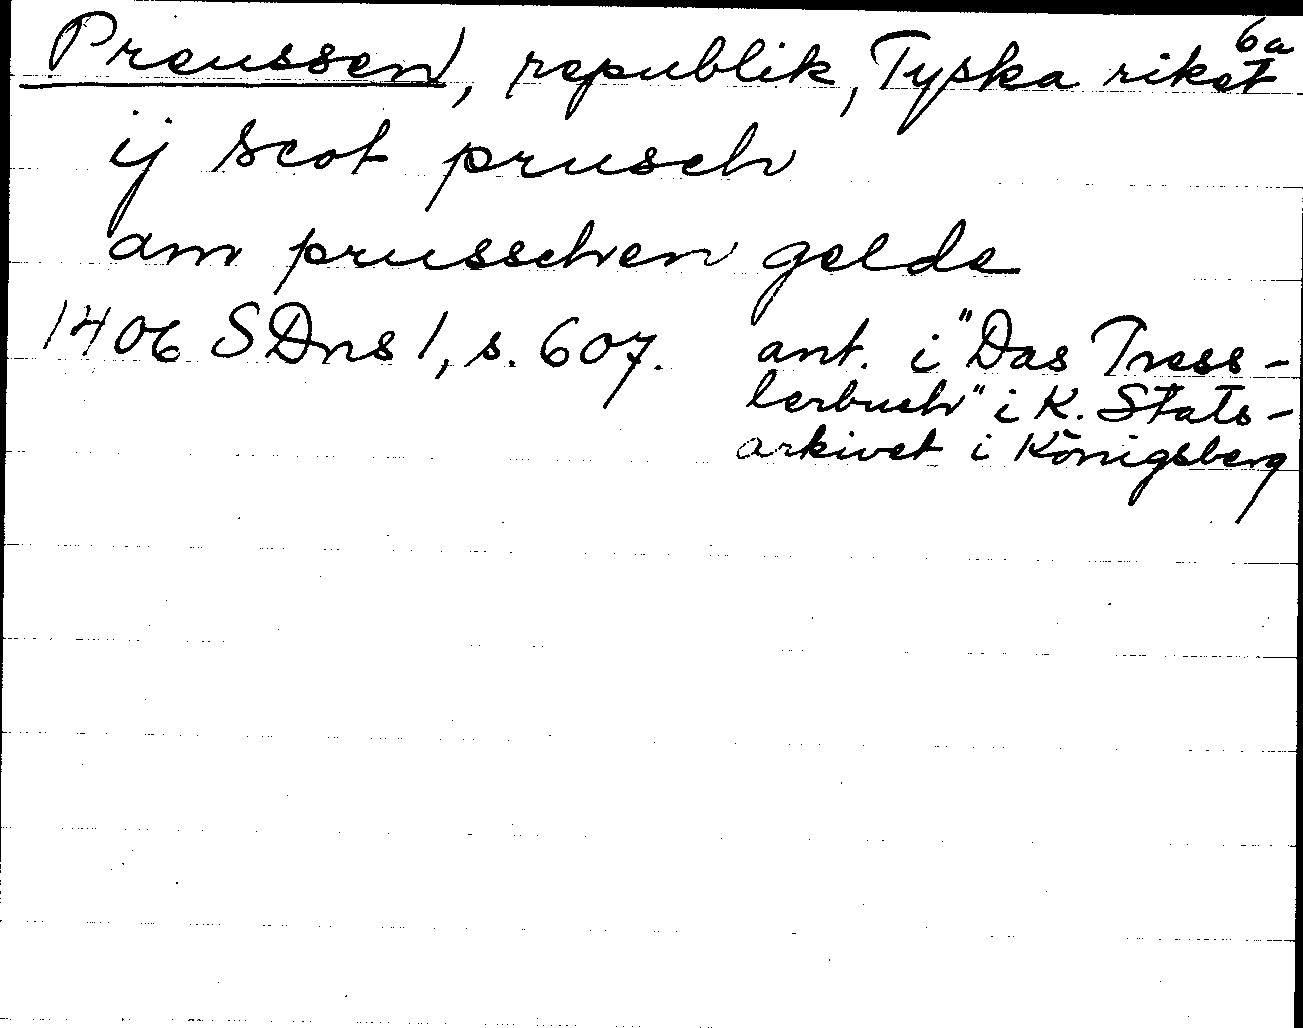 6a
Preussen, republik, Tyska riket
ij scot prusch
am prusschen gelde
1406 SDns 1, s. 607. ant. i "Das Tress-
lerbuch" i K. Stats-
arkivet i Königsberg